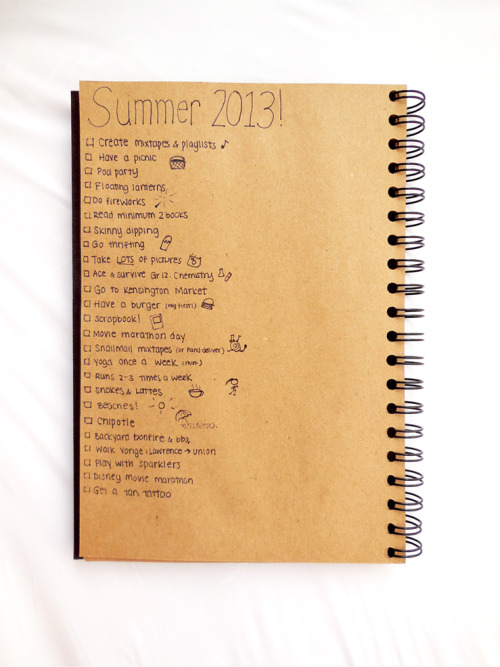 Summer 2013!
Create mixtapes & playlists
Have a picnic
Pool party
Floating lanterns
Do fireworks
Read minimum 2 books
Skinny dipping
Go thrifting
Take LOTS of pictures
Ace & survive Gr 12. Chemistry
Go to Kensington Market
Have a burger (my first!)
Scrapbook!
Movie marathon day
Snailmail mixtapes (or hand deliver)
Yoga once a week (min.)
Runs 2-3 times a week
Snakes & Lattes
Beaches!
Chipotle
Backyard bonfire & bbq
Walk Yonge: Lawrence → Union
Play with sparklers
Disney movie marathon
Get a tan tattoo